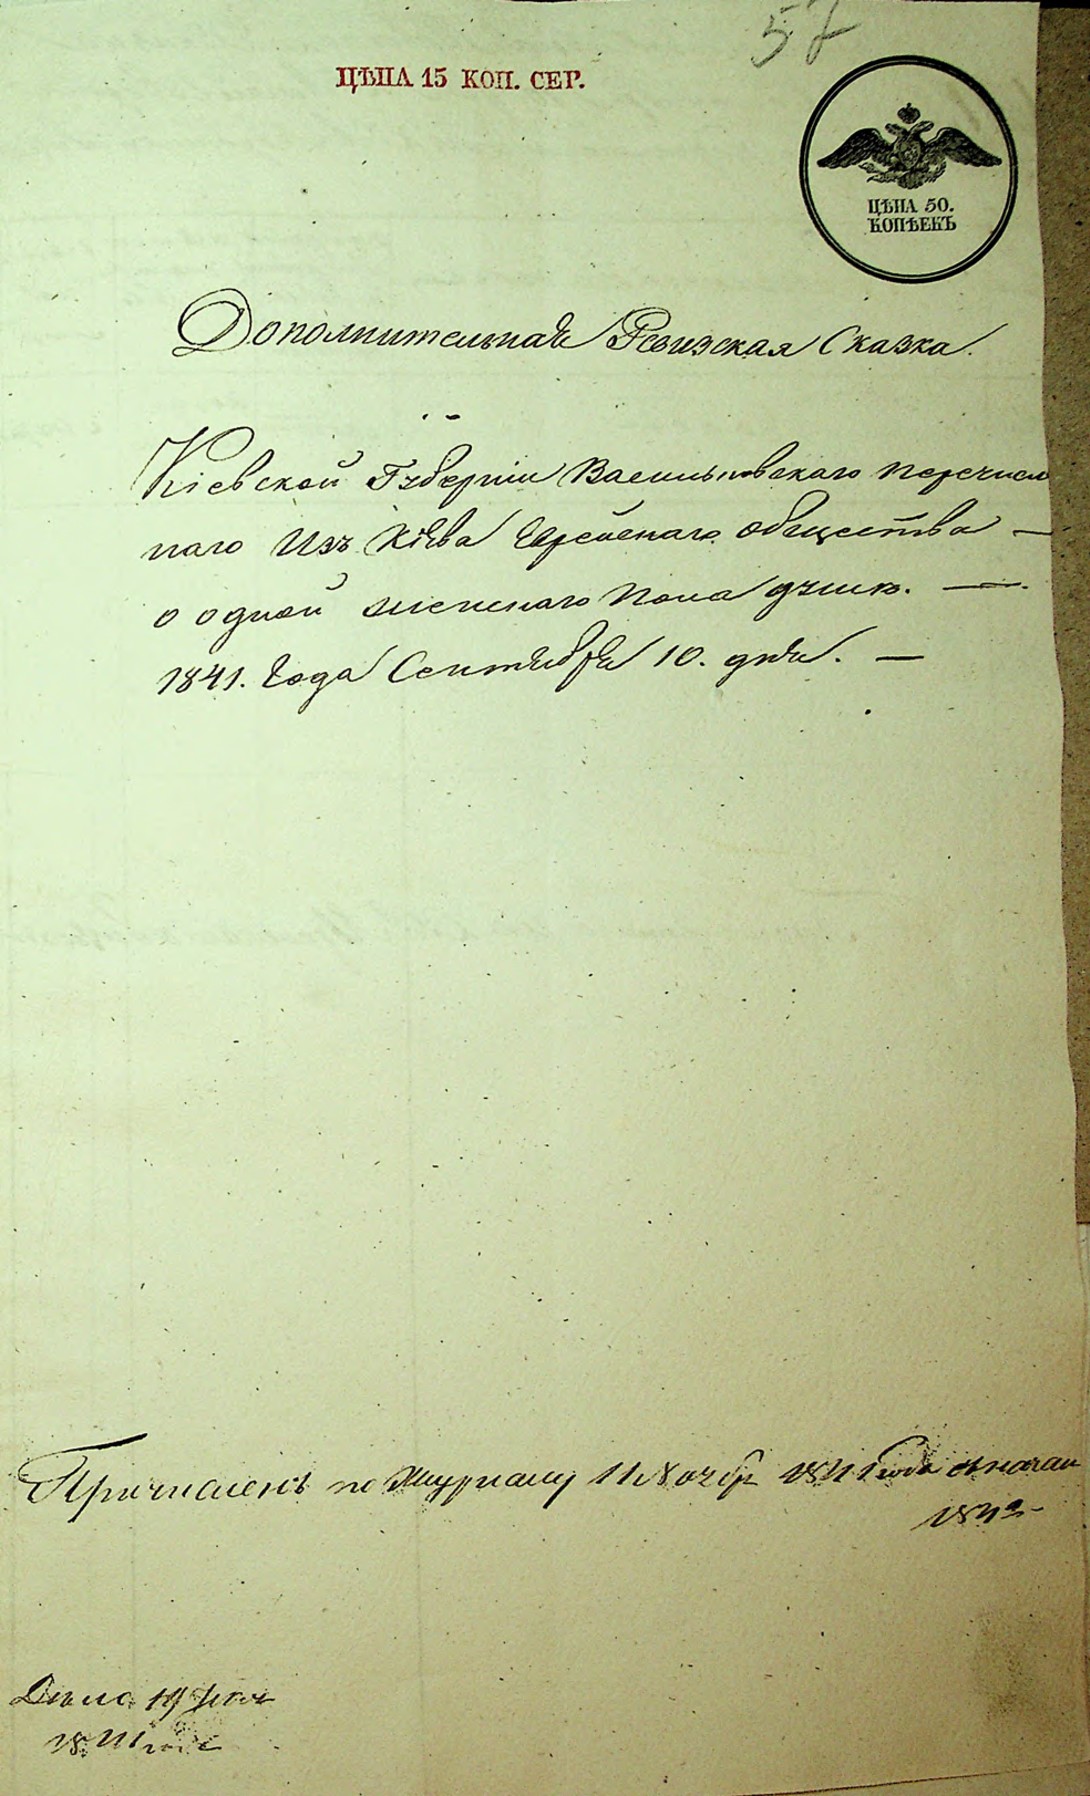 57
ЦѢНА 15 КОП. СЕР.
ЦѢНА 50.
КОПѢЕКЪ
Дополнительная Ревизская Сказка.
Кіевской Губерніи Васильковскаго перечисл
наго Изъ Кіева Еврейскаго общества —
о одной женскаго пола души. —
1841. Года Сентября 10. дня. —
Причисленъ по Журналу 11 Ноября 1841 года съ начала
1842
Дѣло 19
1841 года